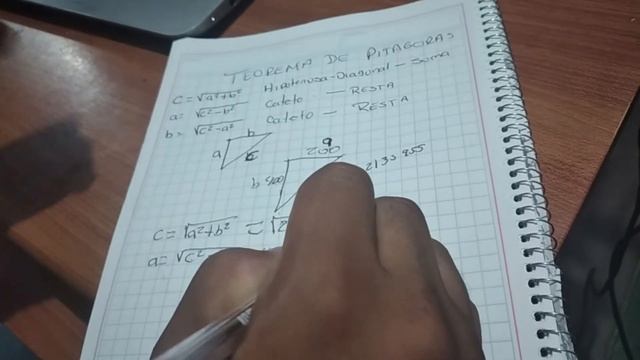 TEOREMA DE PITAGORAS
c = √a²+b² Hipotenusa-Diagonal - Suma
a = √c²-b² Cateto — RESTA
b = √c²-a² Cateto — RESTA
b
a c
a
200
b
c = √a²+b² =
a = √c²